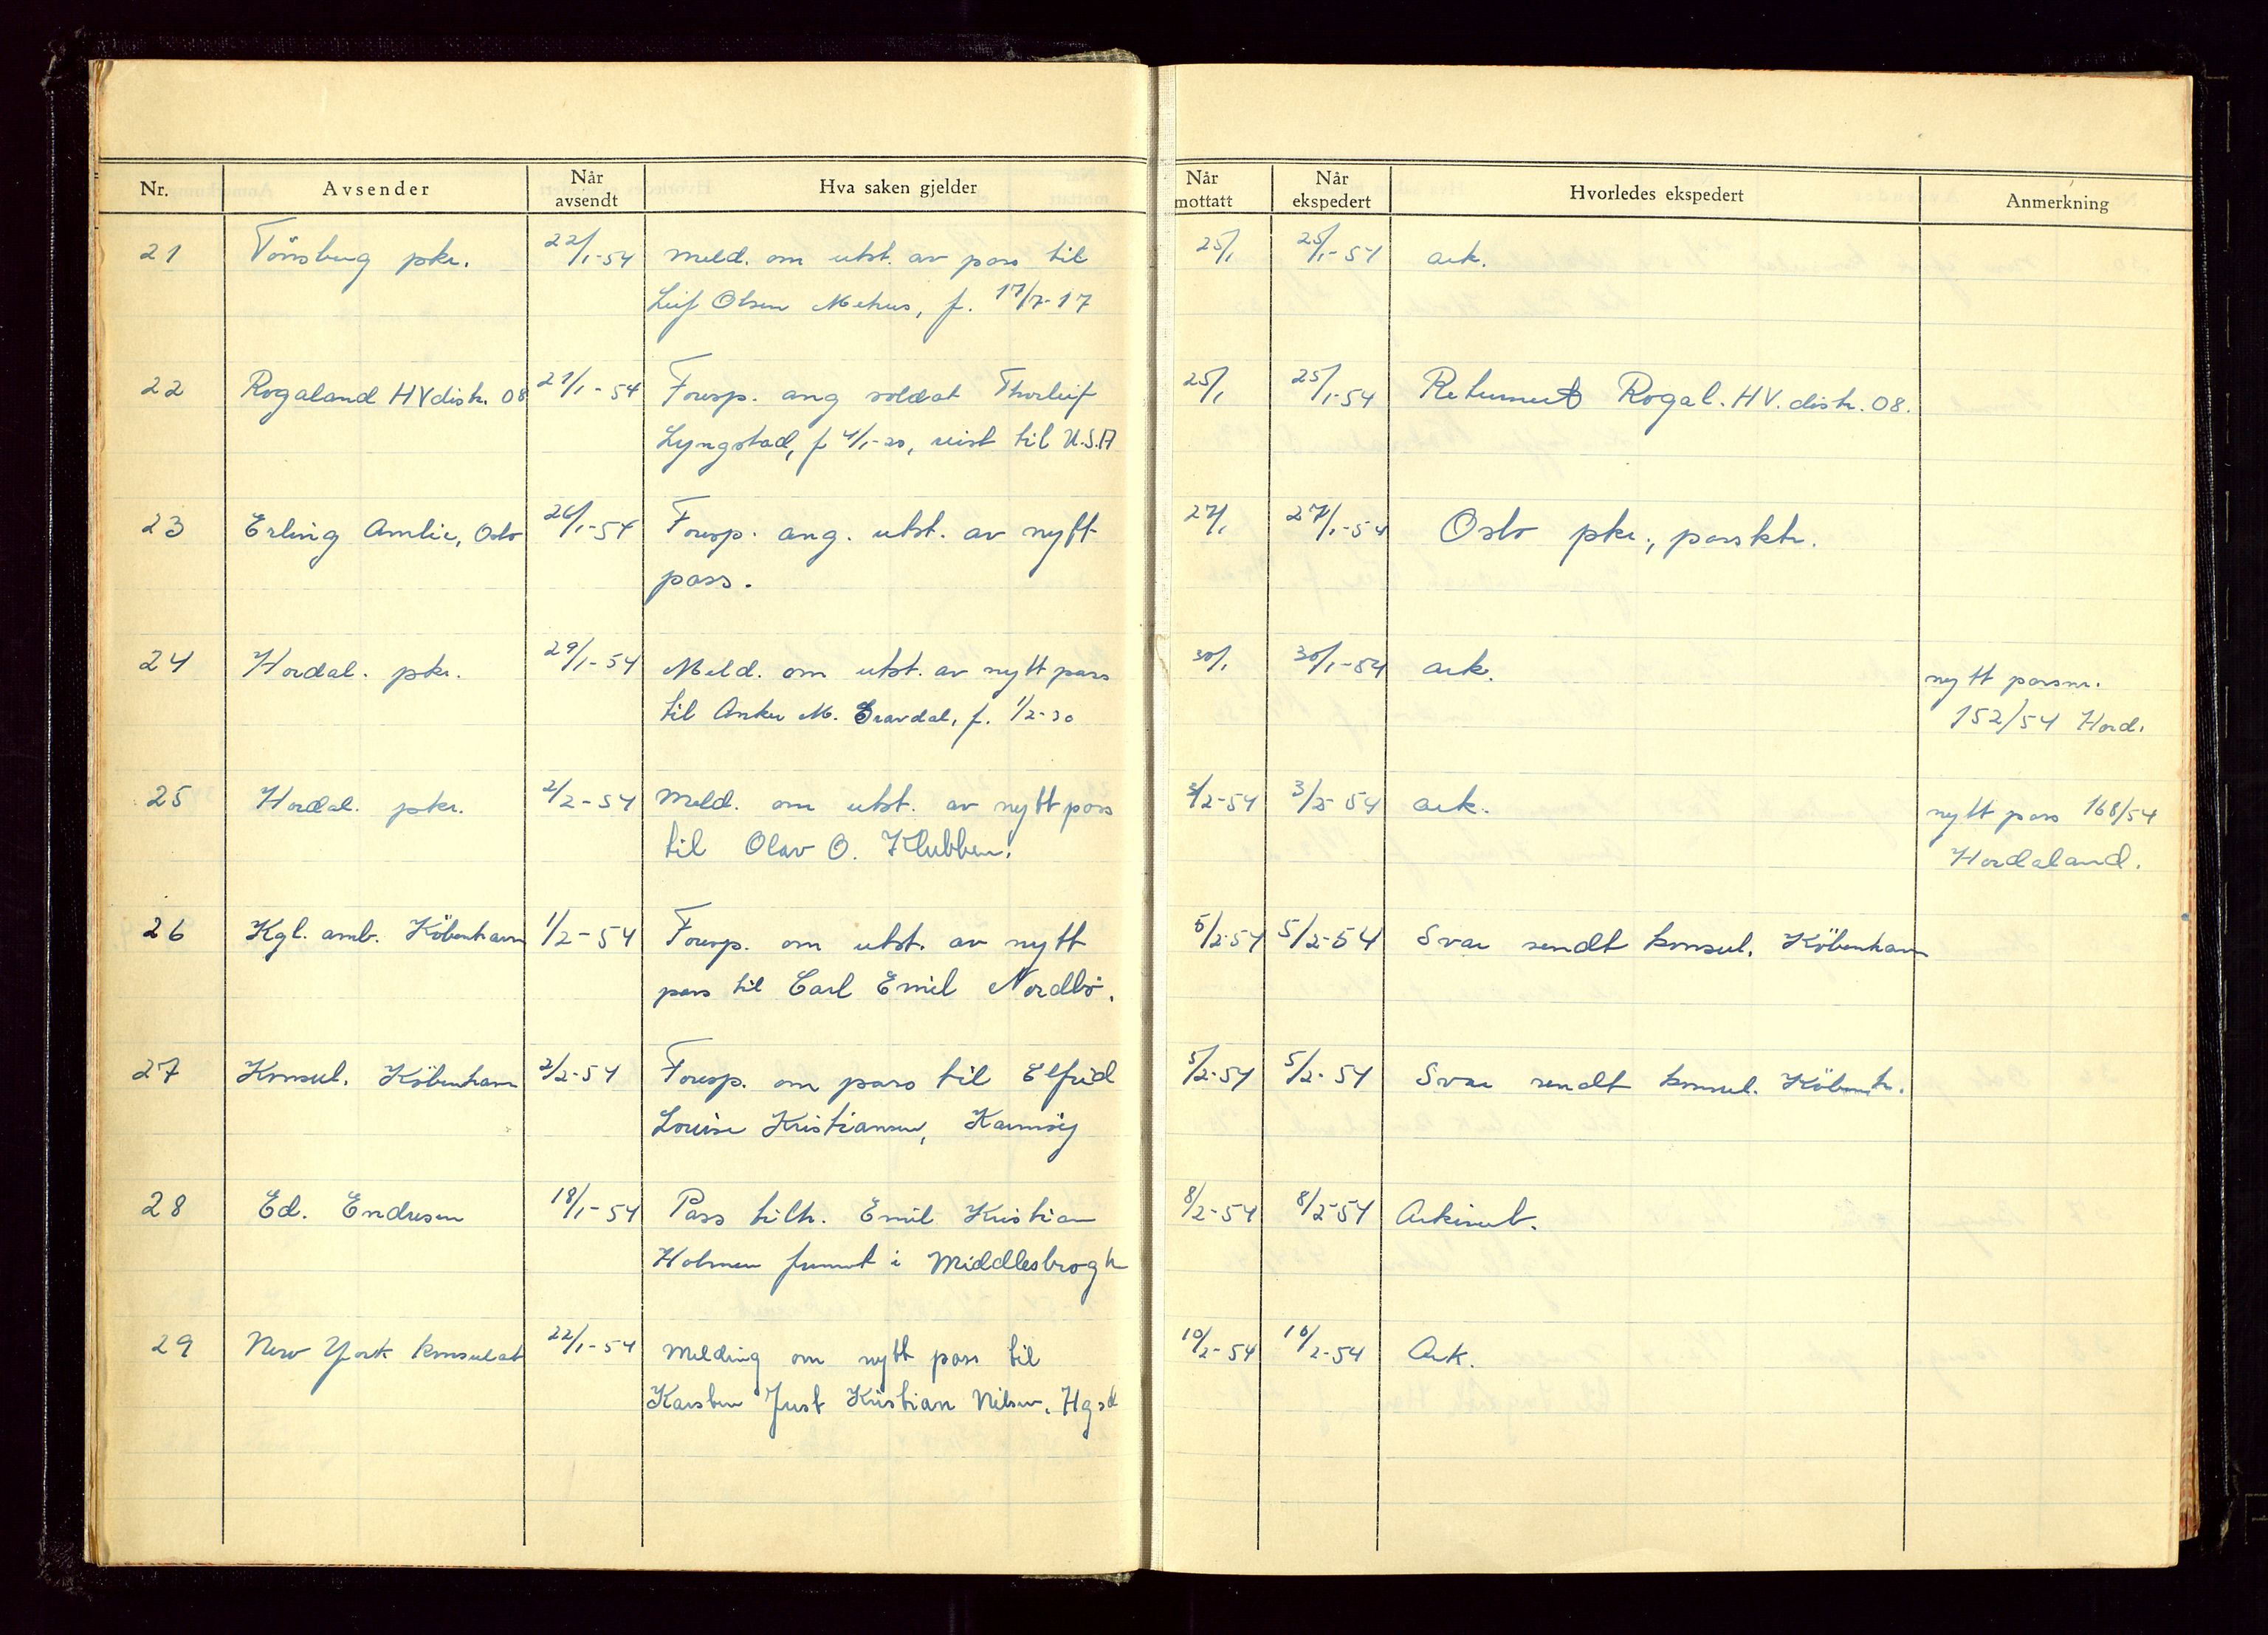 Nr. Avsender Når avsendt Hva saken gjelder Når mottatt Når ekspedert Hvorledes ekspedert Anmerkning
21 Tönsberg pkr. 22/1-54 Meld. om utst. av pass til 25/1 25/1-54 ark.
Leif Olsen Mehus, f. 17/7-17
22 Rogaland HVdistr. 08 21/1-54 Foresp. ang soldat Thorleif 25/1 25/1-54 Returnert Rogal. HV. distr. 08.
Lyngstad, f 4/1-20, reist til U.S.A
23 Erling Amlie, Oslo 26/1-54 Foresp. ang. utst. av nytt 27/1 27/1-54 Oslo pkr., passktr.
pass.
24 Hordal. pkr. 29/1-54 Meld. om utst. av nytt pass 30/1 30/1-54 ark. nytt passnr.
til Anker M. Gravdal, f. 1/2-30 152/54 Hord.
25 Hordal. pkr. 2/2-54 Meld. om utst. av nytt pass 3/2-54 3/2-54 ark. nytt pass 168/54
til Olav O. Klubben. Hordaland.
26 Kgl. amb. Köbenhavn 1/2-54 Foresp. om utst. av nytt 5/2-54 5/2-54 Svar sendt konsul. Köbenhavn
pass til Carl Emil Nordbö.
27 Konsul. Köbenhavn 2/2-54 Foresp. om pass til Elfrid 5/2-54 5/2-54 Svar sendt konsul. Köbenh.
Louise Kristiansen, Karmöy
28 Ed. Endresen 18/1-54 Pass tilh. Emil Kristian 8/2-54 8/2-54 Arkivert.
Holmen funnet i Middlesbrogh
29 New York konsulat 22/1-54 Melding om nytt pass til 10/2-54 10/2-54 Ark.
Karsten Just Kristian Nilsen, Hgsd